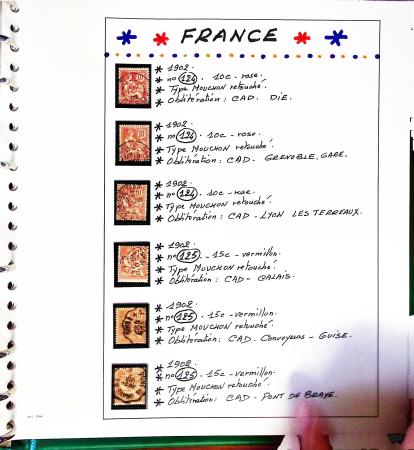 * * FRANCE * *
* 1902.
* n° 124 . 10c - rose.
* Type MOUCHON retouché.
* Oblitération : CAD. DIE.
* 1902.
* n° 124 . 10c - rose
* Type MOUCHON retouché.
* Oblitération : CAD. GRENOBLE, GARE.
* 1902.
* n° 124 . 10c - rose.
* Type MOUCHON retouché.
* Oblitération : CAD - LYON LES TERREAUX.
* 1902.
* n° 125 . 15c - vermillon.
* Type MOUCHON retouché.
* Oblitération : CAD - CALAIS.
* 1902.
* n° 125 . 15c - vermillon.
* Type MOUCHON retouché.
* Oblitération : CAD. Convoyeurs - GUISE.
* 1902.
* n° 125 . 15c - vermillon.
* Type MOUCHON retouché.
* Oblitération : CAD - PONT DE BRAYE.